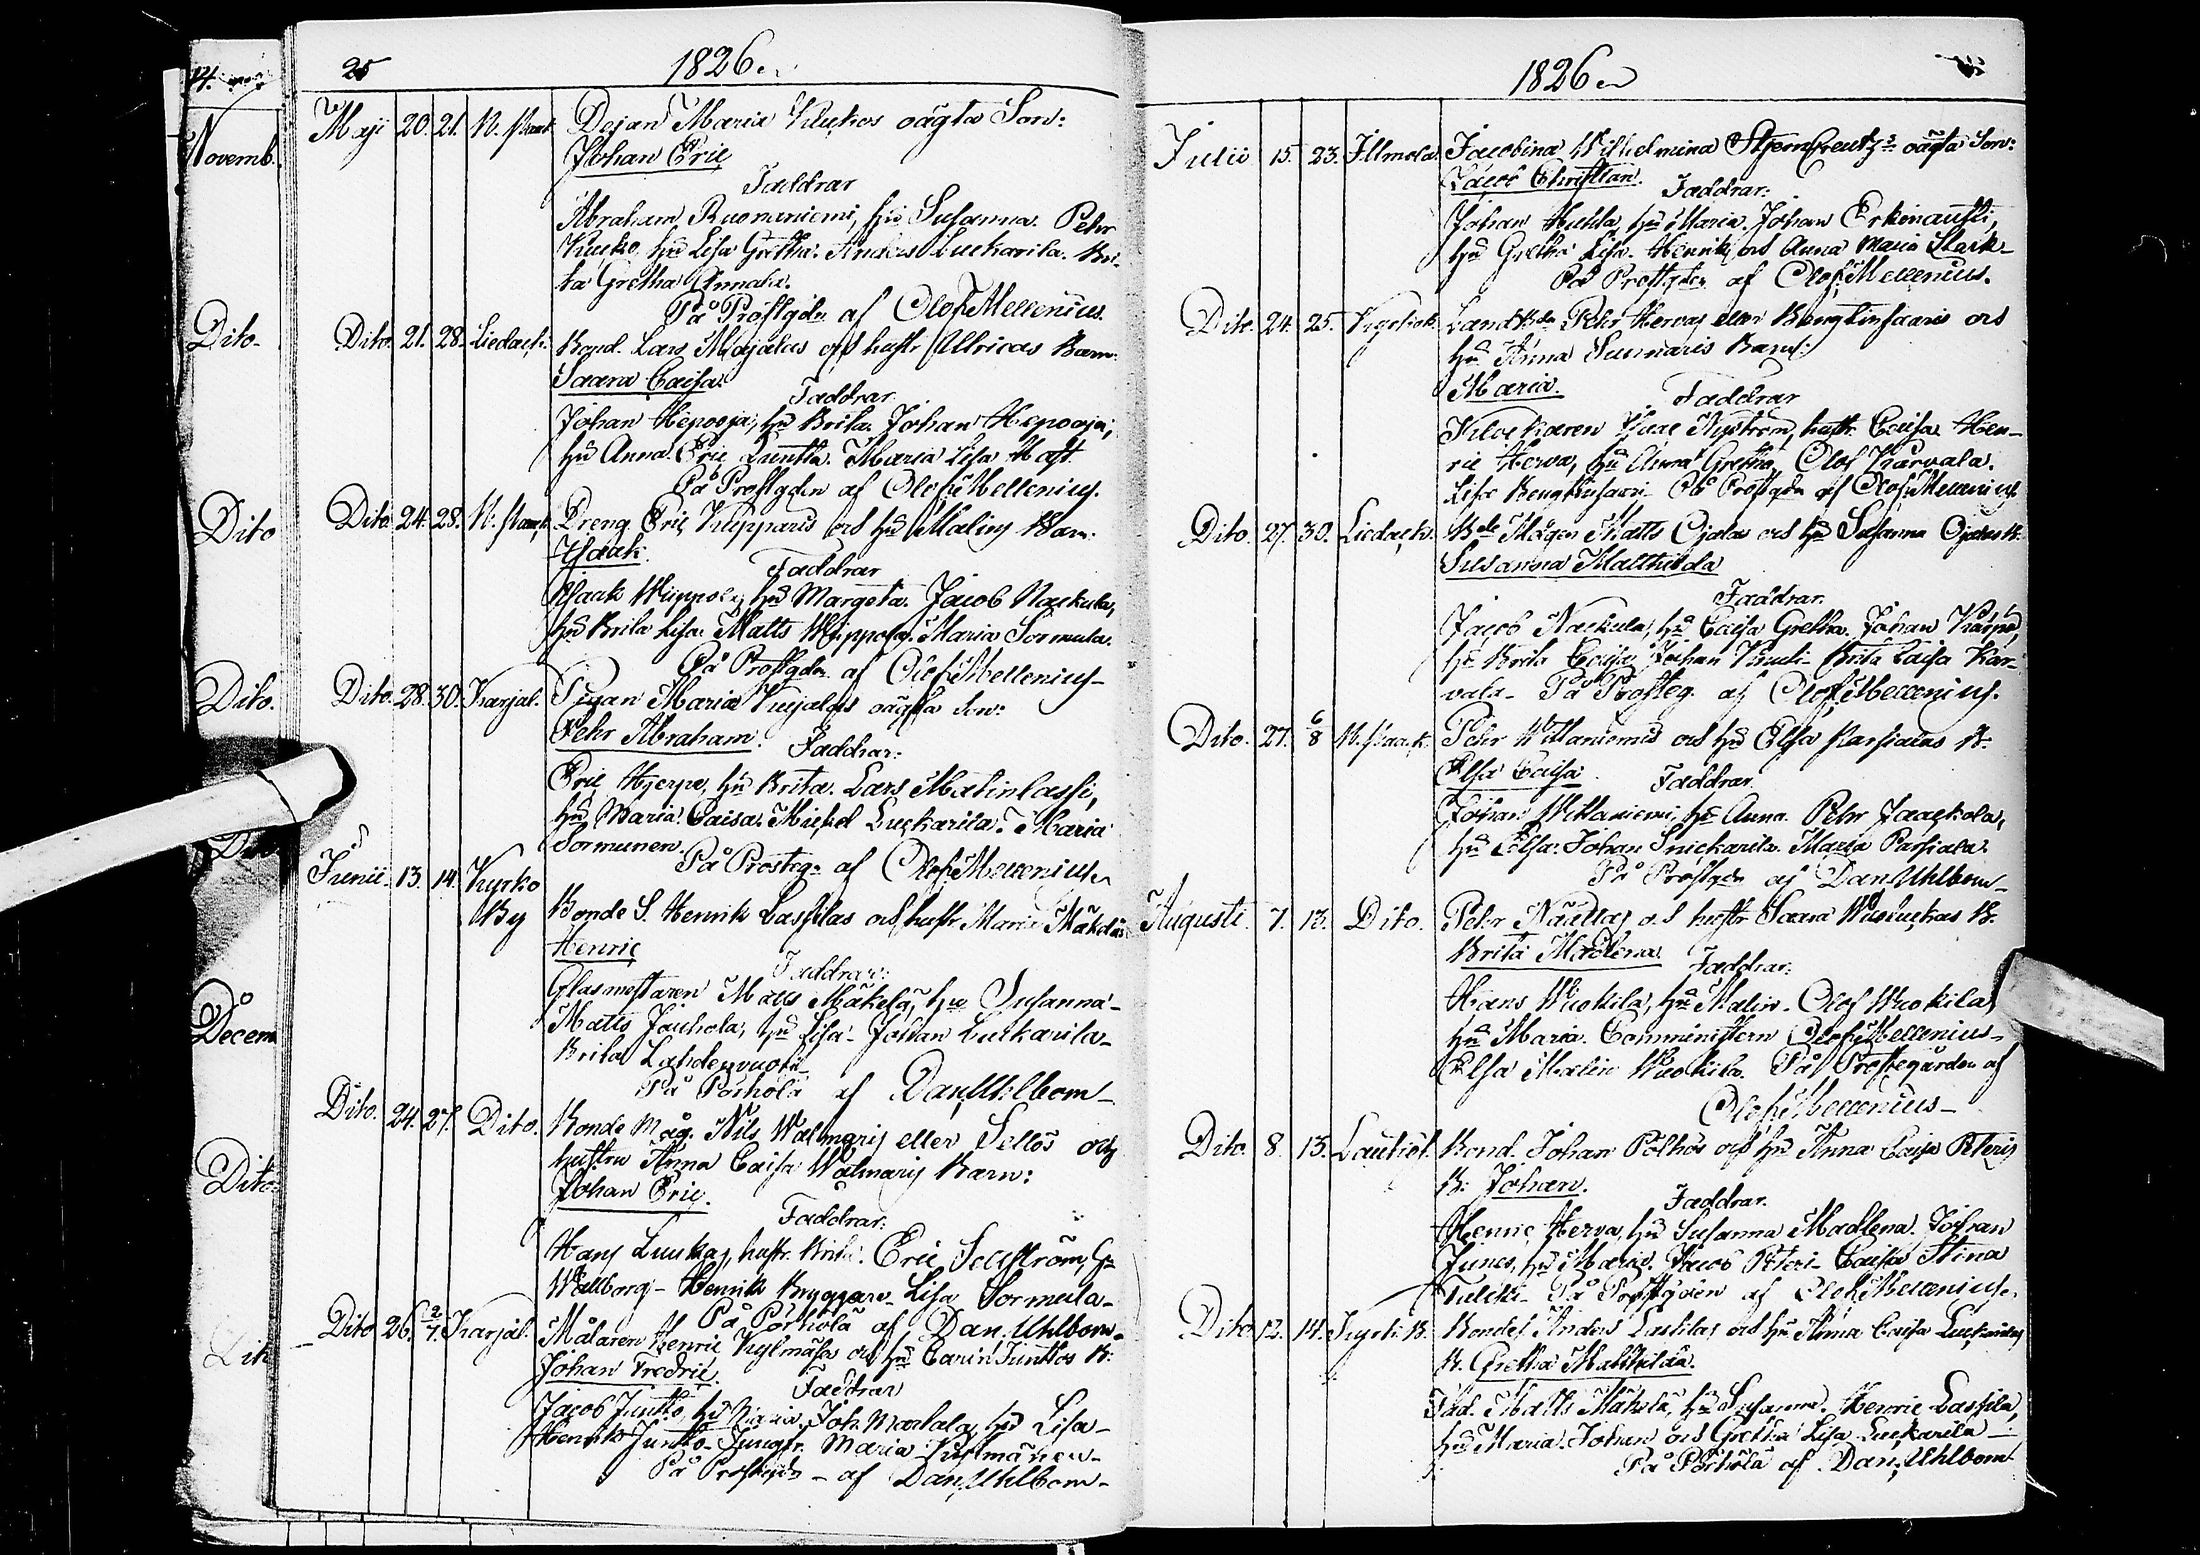 25 1826
Maji 20. 21. Dejan Maria Kuckos oägta Son:
Johan Eric
Faddrar
Abraham Ruonaniemi, hu Susanna. Pehr
hu Lisa Gretha. Anders Luckarila. Bri-
ta Gretha Annala.
På Prostgdn af Olof Mellenius.
Dito. 21. 28. Liedack: Bond. Lars Majalas och hustr Ulricas Barn:
Saara Caisa.
Faddrar
Johan Hepooja, hu Brita. Johan Hepooja,
hu Anna. Eric Maria Lisa
På Prostgdn af Olof Mellenius.
Dito. 24. 28. Dreng Eric och hu Malins Barn.
Isaak.
Faddrar
Isaak hu Margeta. Jacob Nackula,
hu Brita Lisa. Matts Maria Sormula.
På Prostgdn af Olof Mellenius
Dito. 28. 30. Karjal. Pigan Maria oägta Son:
Pehr Abraham. Faddrar:
Eric Hjerpe, hu Brita. Lars Matinlassi,
hu Maria Caisa. Michel Luckarila. Maria
Sormunen.
På Prosteg: af Olof Mellenius
Junii 13. 14. Kyrko
By Bonde S. Henrik Lassilas och hustr. Maria Mäkeläs
Henric
Faddrar:
Glasmästaren Matts Mäkelä, hu Susanna-
Matts Jouhola, hu Lisa- Johan Luckarila-
Brita Lahdenvuoti-
På Pörhölä af Dan. Uhlbom-
Dito. 24. 27. Dito. Bonde Måg. Nils Walmaris eller Sellos och
hustru Anna Caisa Walmaris Barn:
Johan Eric.
Faddrar:
Hans Luukas, hustr. Brita. Eric Sellström, hu
Wallborg- Henrik Bryggare- Lisa Sormula-
På Pörhölä af Dan. Uhlbom-
Dito 26. 2/7. Karjal. Målaren Henric Kylmäsa och hu Carin Junttos B:
Johan Fredric.
Faddrar
Jacob Juntto, hu Maria. Joh. Marttala, hu Lisa-
Henrik Juntto- Jungfr. Maria
På Prostgdn - af Dan. Uhlbom-
1826
Julii 15. 23. Illmola. Jacobina Wilhelmina Stjerncreutz's oägta Son:
Jacob Christian. Faddrar:
Johan Huhta, hu Maria. Johan Erkinantti,
hu Gretha Lisa. Henrik och Anna Maria Stark-
På Prostgdn af Olof Mellenius.
Dito. 24. 25. Pehr Hervas eller Bengtinsaaris och
hu Anna Barn:
Maria.
Faddrar
Isac Nyström, hustr. Caisa. Hen-
ric Herva, hu Anna Gretha, Olof Karvala.
Lisa Bengtinsaari- På Prostgdn af Olof Mellenius
Dito. 27. 30. Liedack. Bde Mågen Matts Ojalas och hu Susanna Ojalas B.
Susanna Mathilda
Faddrar.
Jacob Nackula, hu Caisa Gretha. Johan Kärpä,
hu Brita Caisa. Johan Brita Caisa Kar-
vala- På Prosteg. af Olof Mellenius.
Dito. 27. 6/8 Pehr Wittaniemis och hu Elsa Parsialas B:
Elsa Caisa. Faddrar.
Johan Wittaniemi, hu Anna. Pehr Jaackola,
hu Elsa. Johan Snickarila. Maria Parsiala.
På Prostgdn af Dan. Uhlbom-
Augusti. 7. 13. Dito. Pehr och hustr. Saara B.
Brita Madlena. Faddrar:
Hans Wuokila, hu Malin- Olof Wuokila,
hu Maria. Comministern Olof Mellenius-
Elsa Malin Wuokila. På Prostegården af
Olof Mellenius-
Dito. 8. 13. Bond. Johan Pölhös och hu Anna Caisa Peteris
B: Johan.
Faddrar.
Henric Herva, hu Susanna Madlena. Johan
hu Maria. Jacob Peteri- Caisa Stina
På Prostgden af Olof Mellenius.
Dito 12. 14. Kyrk. B. Bonde S. Anders Lassilas och hu Anna Caisa Luckarilas
B. Gretha Mathilda.
Fad. Matts Mäkelä, hu Susanna. Henric Lassila,
hu Maria. Johan och Gretha Lisa Luckarila-
På Pörhölä af Dan. Uhlbom
Novemb.
Dito.
Dito
Dito.
Decem
Dito.